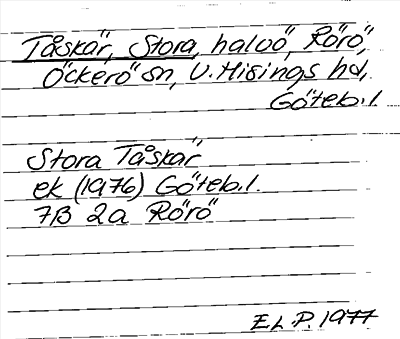 Tåskär, Stora, halvö, Rörö,
Öckerö sn, V. Hisings hd,
Göteb. l.
Stora Tåskär
ek (1976) Göteb. l.
7B 2a Rörö
EL P. 1977